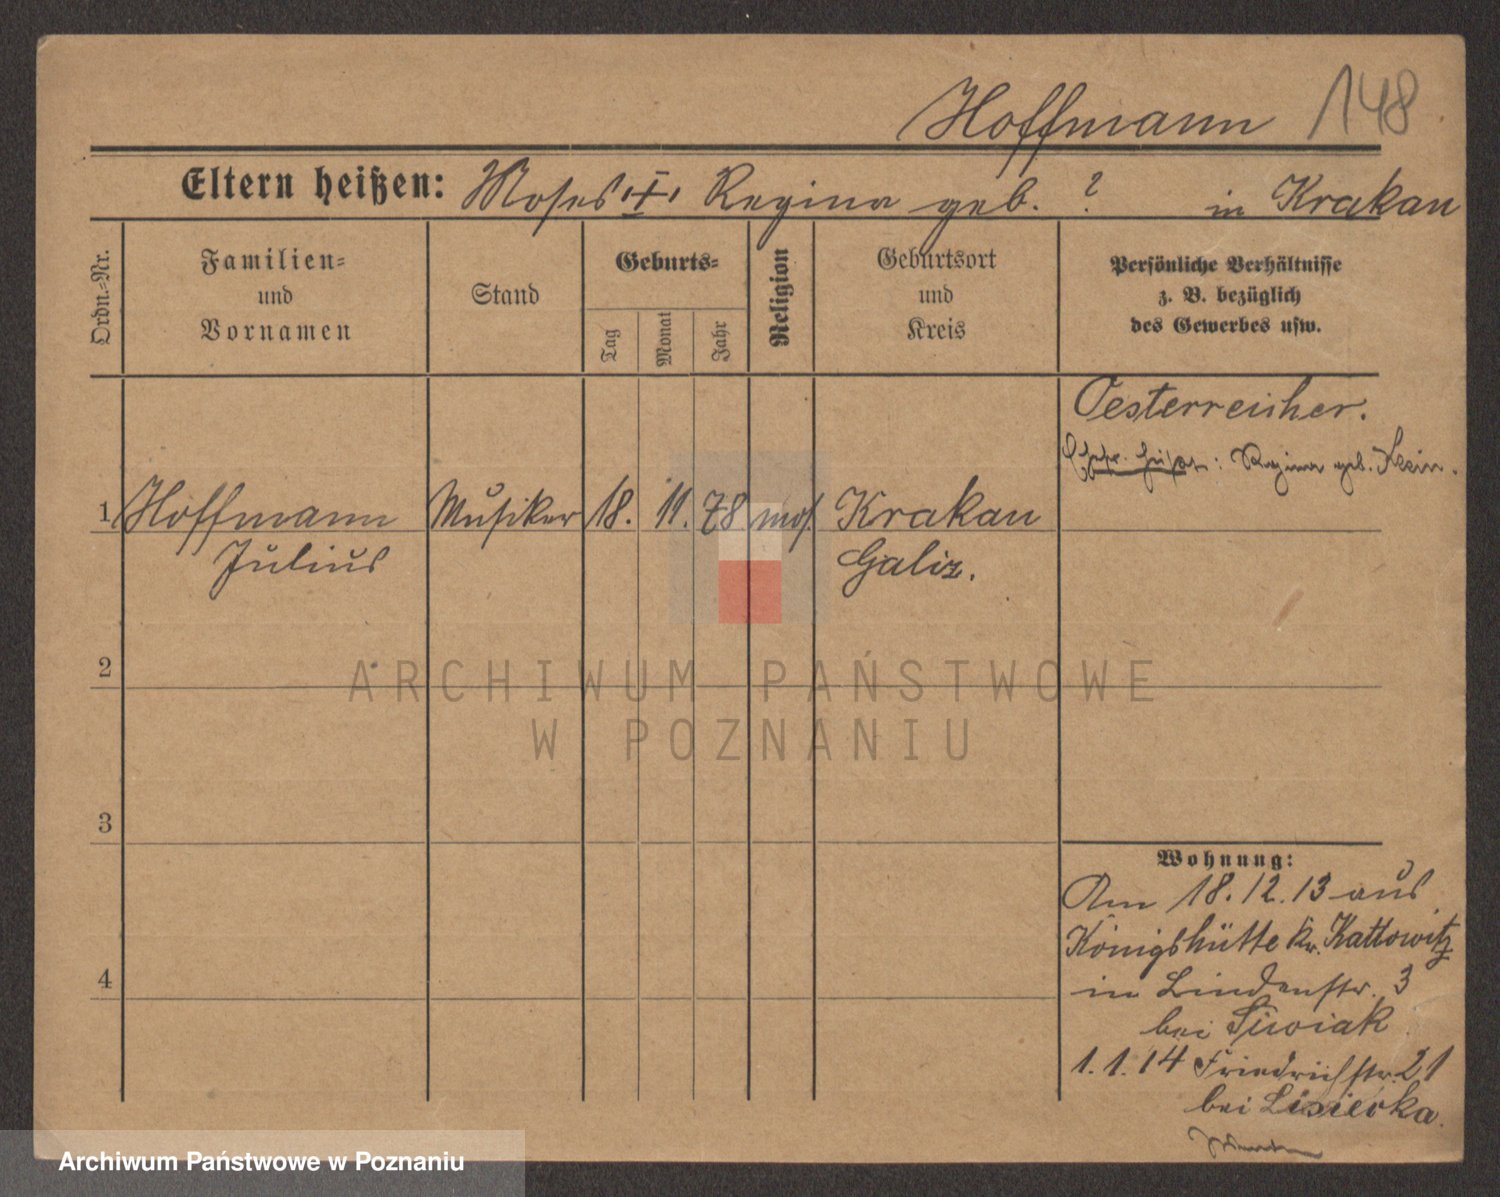 Hoffmann 148
Eltern heißen: Moses, Regina geb. ? in Krakau
Ordn.-Nr.
Familien-
und
Vornamen
Stand
Geburts-
Tag
Monat
Jahr
Religion
Geburtsort
und
Kreis
Persönliche Verhältnisse
z. B. bezüglich
des Gewerbes usw.
Oesterreicher.
Regina geb.
1 Hoffmann Musiker 18. 11. 78 mos Krakau
Julius Galiz.
2
3
4
Wohnung:
Am 18.12.13 aus
Königshütte Kr. Kattowitz
in Lindenstr. 3
bei Siwiak
1.1.14 Friedrichstr. 21
bei Lisiecka.
ARCHIWUM PAŃSTWOWE
W POZNANIU
Archiwum Państwowe w Poznaniu